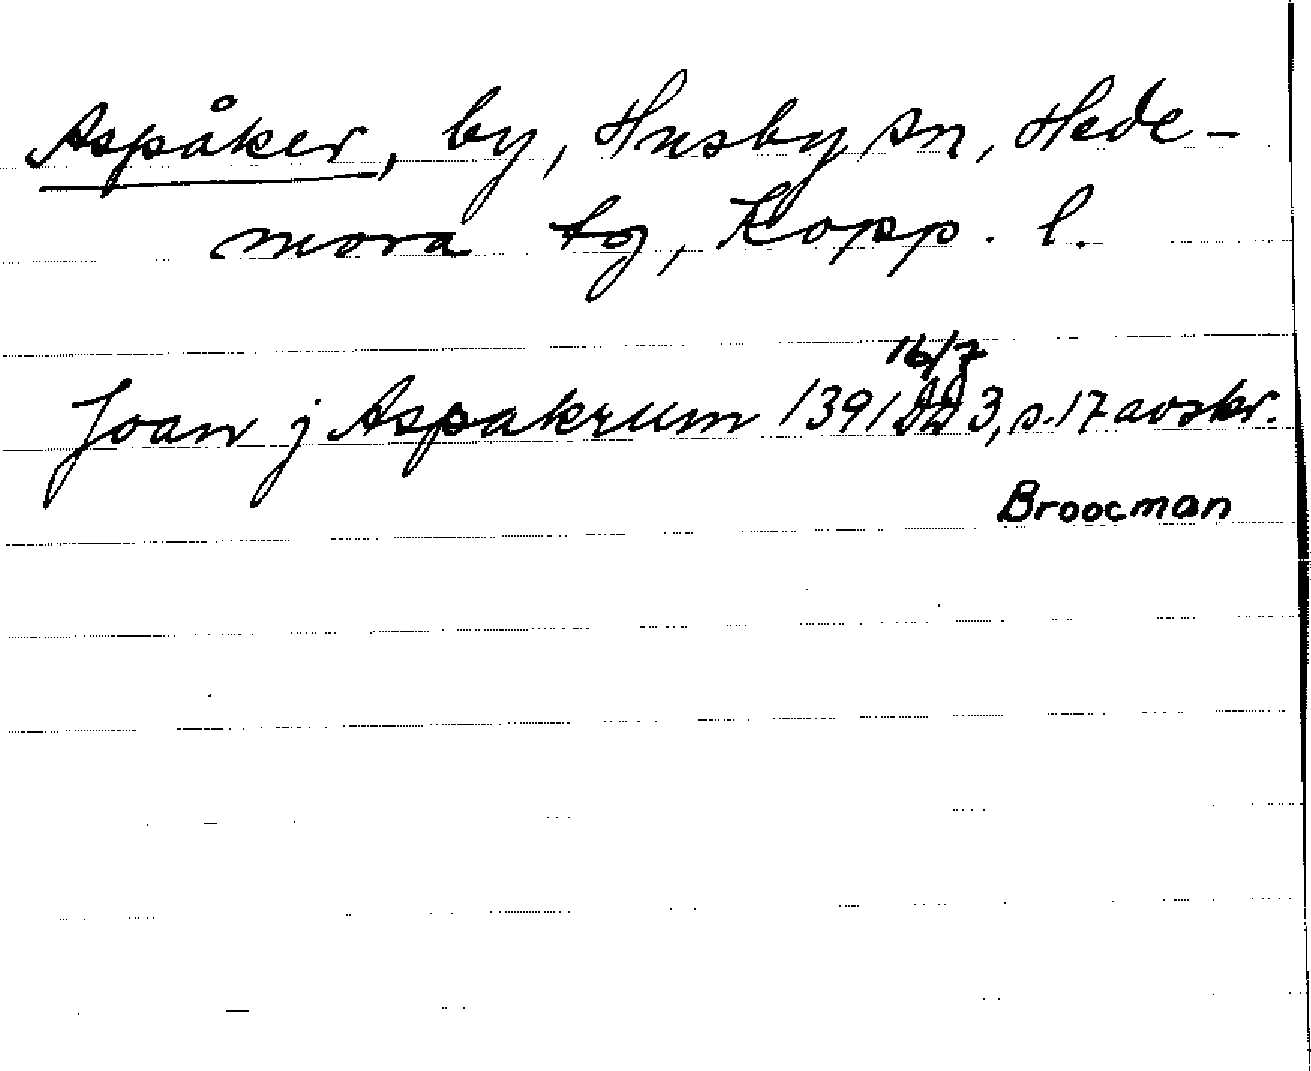 Aspåker, by, Husby sn, Hede-
mora tg, Kopp. l.
16/7
Joan j Aspakrum 1391 DD 3, s. 17 avskr.
Broocman